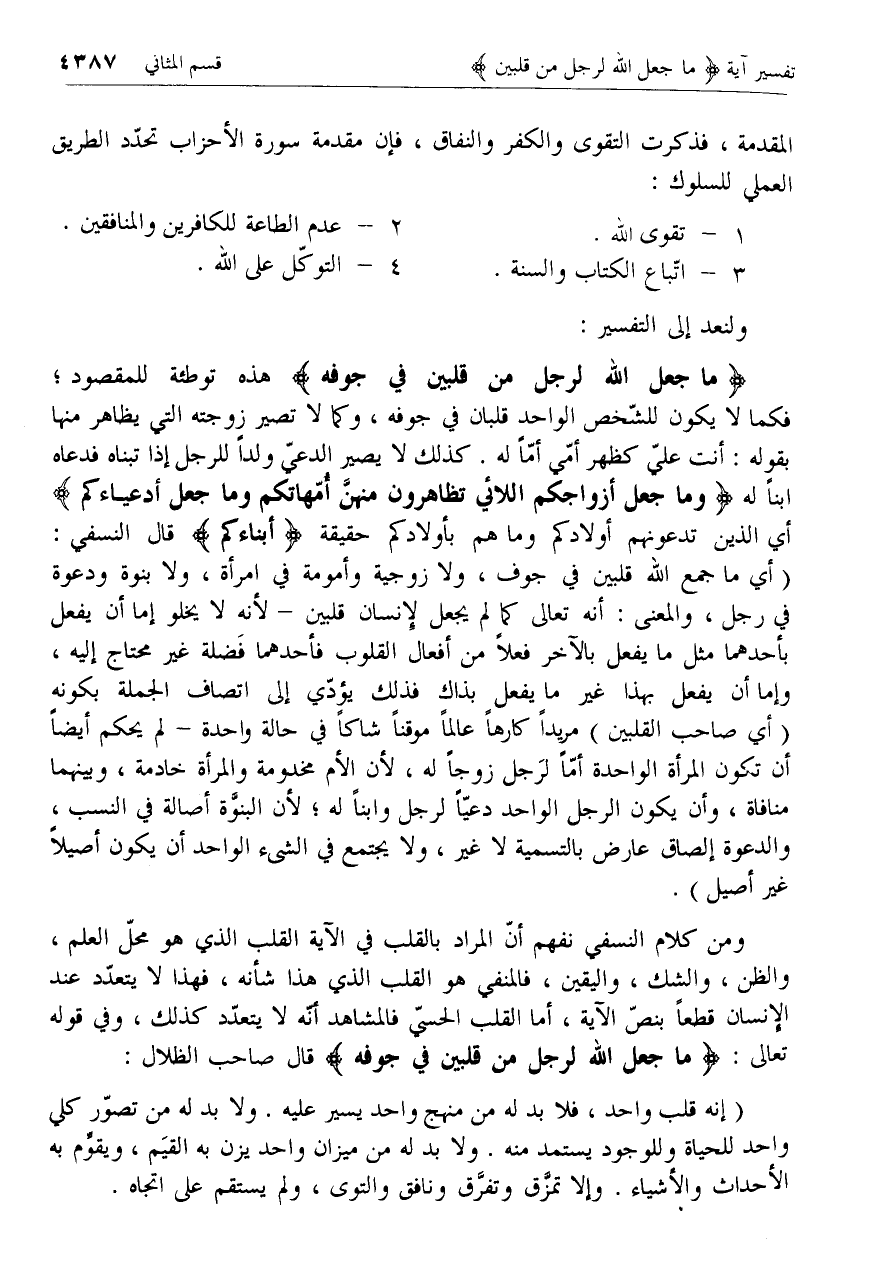 تفسير آية ﴿ ما جعل الله لرجل من قلبين ﴾ قسم المثاني ٤٣٨٧
المقدمة ، فذكرت التقوى والكفر والنفاق ، فإن مقدمة سورة الأحزاب تحدّد الطريق
العملي للسلوك :
١ – تقوى الله . ٢ – عدم الطاعة للكافرين والمنافقين .
٣ – اتّباع الكتاب والسنة . ٤ – التوكّل على الله .
ولنعد إلى التفسير :
﴿ ما جعل الله لرجل من قلبين في جوفه ﴾ هذه توطئة للمقصود ؛
فكما لا يكون للشّخص الواحد قلبان في جوفه ، وكما لا تصير زوجته التي يظاهر منها
بقوله : أنت عليّ كظهر أمّي أمّاً له . كذلك لا يصير الدعيّ ولداً للرجل إذا تبناه فدعاه
ابناً له ﴿ وما جعل أزواجكم اللائي تظاهرون منهنَّ أُمّهاتكم وما جعل أدعيـاءكم ﴾
أي الذين تدعونهم أولادكم وما هم بأولادكم حقيقة ﴿ أبناءكم ﴾ قال النسفي :
( أي ما جمع الله قلبين في جوف ، ولا زوجية وأمومة في امرأة ، ولا بنوة ودعوة
في رجل ، والمعنى : أنه تعالى كما لم يجعل لإنسان قلبين – لأنه لا يخلو إما أن يفعل
بأحدهما مثل ما يفعل بالآخر فعلاً من أفعال القلوب فأحدهما فَضلة غير محتاج إليه ،
وإما أن يفعل بهذا غير ما يفعل بذاك فذلك يؤدّي إلى اتصاف الجملة بكونه
( أي صاحب القلبين ) مريداً كارهاً عالماً موقناً شاكاً في حالة واحدة – لم يحكم أيضاً
أن تكون المرأة الواحدة أمّاً لرَجل زوجاً له ، لأن الأم مخدومة والمرأة خادمة ، وبينهما
منافاة ، وأن يكون الرجل الواحد دعيّاً لرجل وابناً له ؛ لأن البنوَّة أصالة في النسب ،
والدعوة إلصاق عارض بالتسمية لا غير ، ولا يجتمع في الشىء الواحد أن يكون أصيلاً
غير أصيل ) .
ومن كلام النسفي نفهم أنّ المراد بالقلب في الآية القلب الذي هو محلّ العلم ،
والظن ، والشك ، واليقين ، فالمنفي هو القلب الذي هذا شأنه ، فهذا لا يتعدّد عند
الإنسان قطعاً بنصّ الآية ، أما القلب الحسيّ فالمشاهد أنّه لا يتعدّد كذلك ، وفي قوله
تعالى : ﴿ ما جعل الله لرجل من قلبين في جوفه ﴾ قال صاحب الظلال :
( إنه قلب واحد ، فلا بد له من منهج واحد يسير عليه . ولا بد له من تصوّر كلي
واحد للحياة وللوجود يستمد منه . ولا بد له من ميزان واحد يزن به القيَم ، ويقوَّم به
الأحداث والأشياء . وإلا تمزَّق وتفرَّق ونافق والتوى ، ولم يستقم على اتجاه .